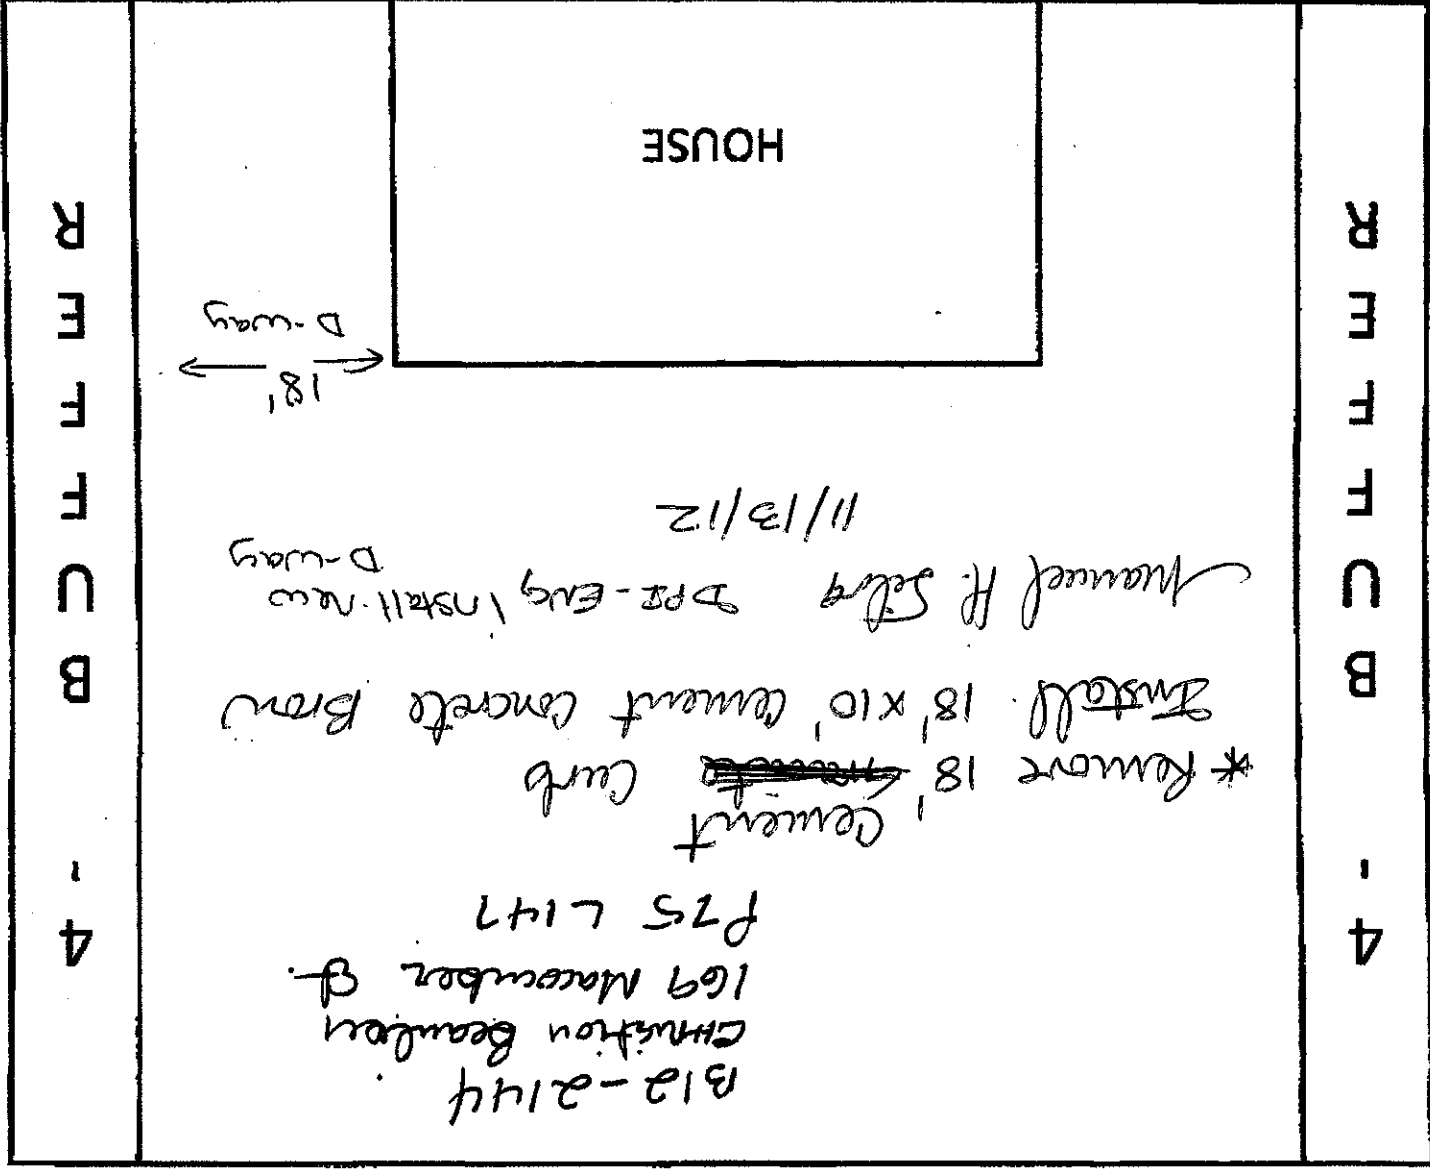 B12-2144
Christian Beaulieu
169 Macomber St.
P75 L147
Cement
* Remove 18' Curb
Install 18'x10' Cement Concrete Brow
Manuel H. Silva DPI-Eng install new
D-way
11/13/12
18'
D-way
HOUSE
4 - BUFFER
4 - BUFFER